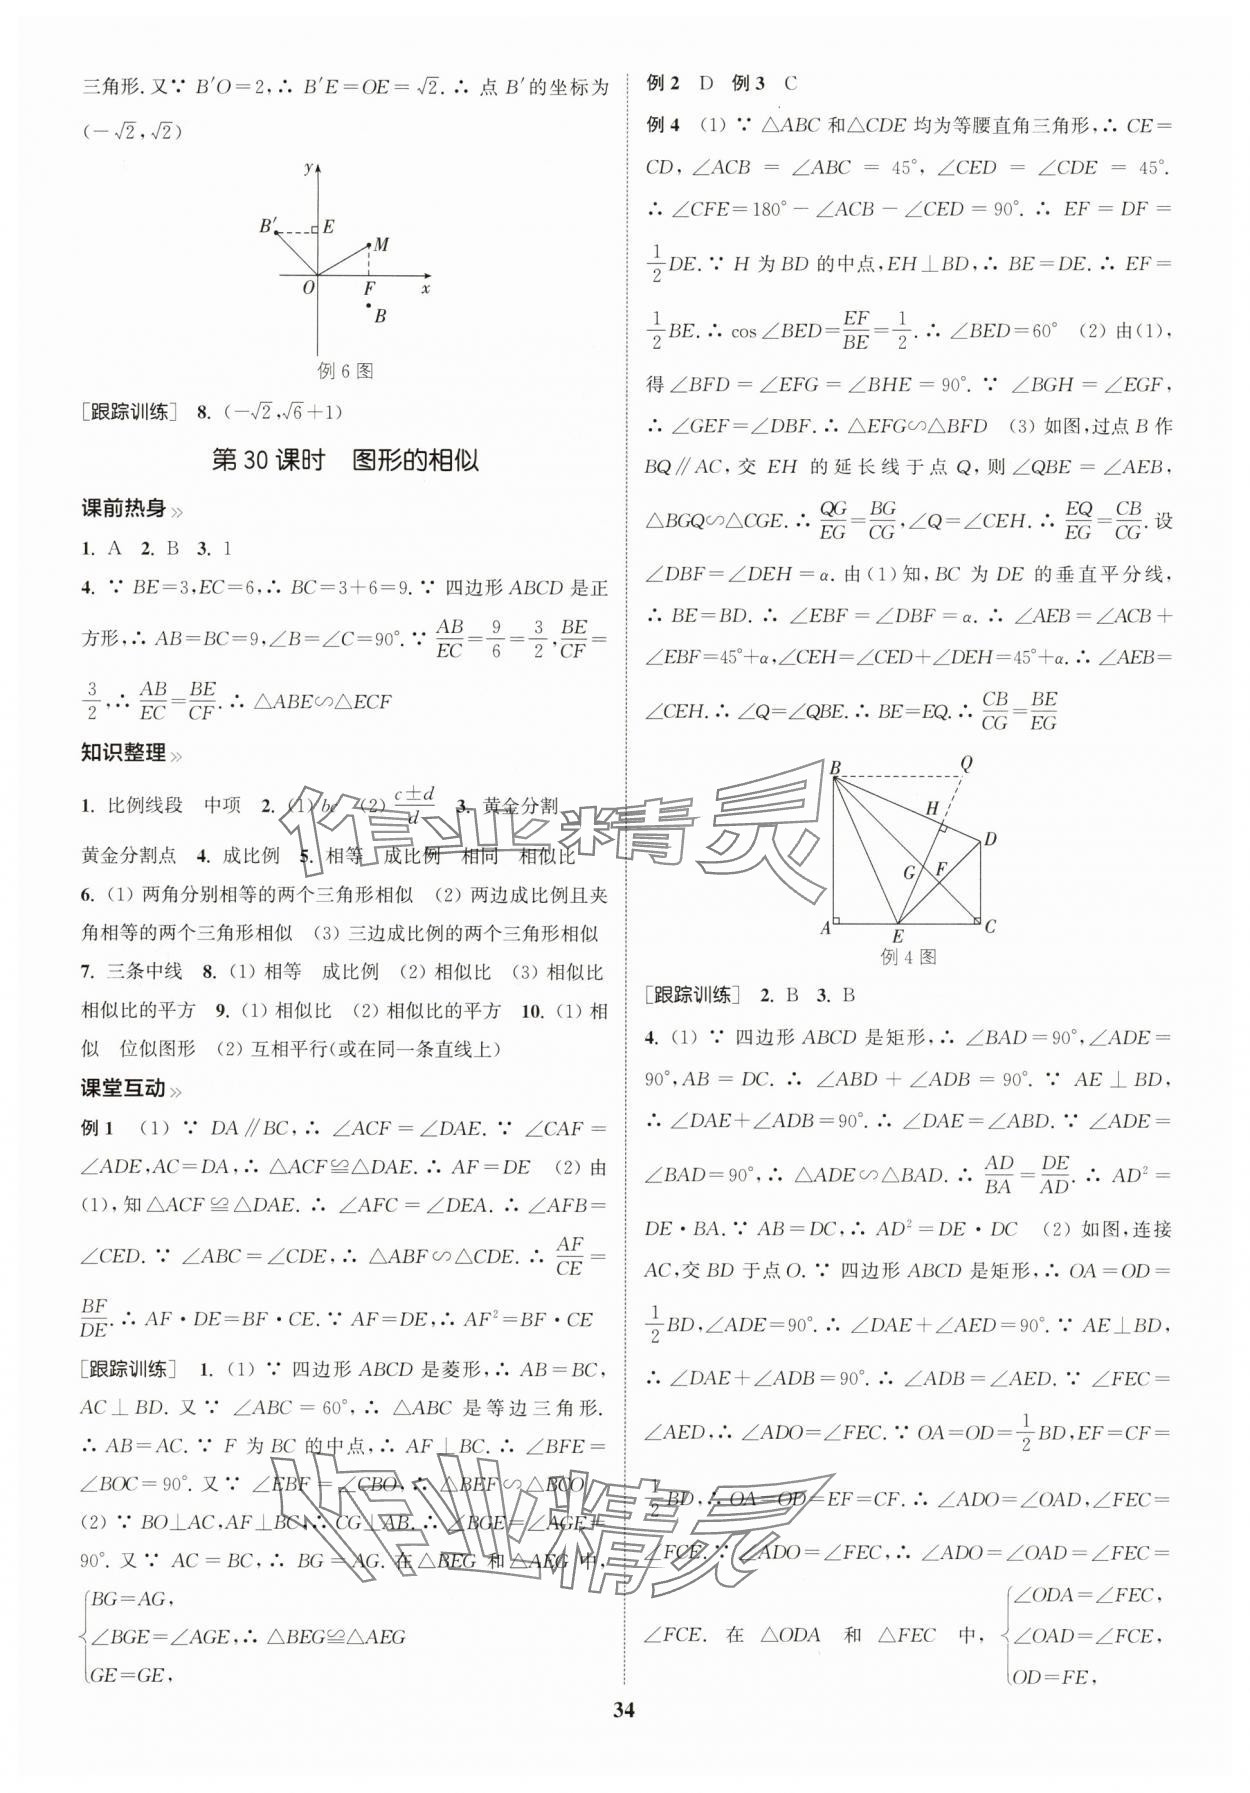 三角形.又∵ B′O=2,∴ B′E=OE=√2.∴ 点 B′的坐标为
(-√2,√2)
y
B′
E
M
O
F
x
B
例 6 图
[跟踪训练] 8. (-√2,√6+1)
第 30 课时 图形的相似
课前热身»
1. A 2. B 3. 1
4. ∵ BE=3,EC=6,∴ BC=3+6=9.∵ 四边形 ABCD 是正
方形,∴ AB=BC=9,∠B=∠C=90°.∵ AB/EC=9/6=3/2,BE/CF=
3/2,∴ AB/EC=BE/CF.∴ △ABE∽△ECF
知识整理»
1. 比例线段 中项 2. (1) bc (2) (c±d)/d 3. 黄金分割
黄金分割点 4. 成比例 5. 相等 成比例 相同 相似比
6. (1) 两角分别相等的两个三角形相似 (2) 两边成比例且夹
角相等的两个三角形相似 (3) 三边成比例的两个三角形相似
7. 三条中线 8. (1) 相等 成比例 (2) 相似比 (3) 相似比
相似比的平方 9. (1) 相似比 (2) 相似比的平方 10. (1) 相
似 位似图形 (2) 互相平行(或在同一条直线上)
课堂互动»
例 1 (1) ∵ DA∥BC,∴ ∠ACF=∠DAE.∵ ∠CAF=
∠ADE,AC=DA,∴ △ACF≌△DAE.∴ AF=DE (2) 由
(1),知△ACF≌△DAE.∴ ∠AFC=∠DEA.∴ ∠AFB=
∠CED.∵ ∠ABC=∠CDE,∴ △ABF∽△CDE.∴ AF/CE=
BF/DE.∴ AF·DE=BF·CE.∵ AF=DE,∴ AF²=BF·CE
[跟踪训练] 1. (1) ∵ 四边形 ABCD 是菱形,∴ AB=BC,
AC⊥BD.又∵ ∠ABC=60°,∴ △ABC 是等边三角形.
∴ AB=AC.∵ F 为 BC 的中点,∴ AF⊥BC.∴ ∠BFE=
∠BOC=90°.又∵ ∠EBF=∠CBO,∴ △BEF∽△BCO
(2) ∵ BO⊥AC,AF⊥BC,∴ CG⊥AB.∴ ∠BGE=∠AGE=
90°.又∵ AC=BC,∴ BG=AG.在△BEG 和△AEG 中,
BG=AG,
∠BGE=∠AGE,∴ △BEG≌△AEG
GE=GE,
例 2 D 例 3 C
例 4 (1) ∵ △ABC 和△CDE 均为等腰直角三角形,∴ CE=
CD,∠ACB=∠ABC=45°,∠CED=∠CDE=45°.
∴ ∠CFE=180°-∠ACB-∠CED=90°.∴ EF=DF=
1/2DE.∵ H 为 BD 的中点,EH⊥BD,∴ BE=DE.∴ EF=
1/2BE.∴ cos∠BED=EF/BE=1/2.∴ ∠BED=60° (2) 由(1),
得∠BFD=∠EFG=∠BHE=90°.∵ ∠BGH=∠EGF,
∴ ∠GEF=∠DBF.∴ △EFG∽△BFD (3) 如图,过点 B 作
BQ∥AC,交 EH 的延长线于点 Q,则∠QBE=∠AEB,
△BGQ∽△CGE.∴ QG/EG=BG/CG,∠Q=∠CEH.∴ EQ/EG=CB/CG.设
∠DBF=∠DEH=α.由(1)知,BC 为 DE 的垂直平分线,
∴ BE=BD.∴ ∠EBF=∠DBF=α.∴ ∠AEB=∠ACB+
∠EBF=45°+α,∠CEH=∠CED+∠DEH=45°+α.∴ ∠AEB=
∠CEH.∴ ∠Q=∠QBE.∴ BE=EQ.∴ CB/CG=BE/EG
B
Q
H
D
G
F
A
E
C
例 4 图
[跟踪训练] 2. B 3. B
4. (1) ∵ 四边形 ABCD 是矩形,∴ ∠BAD=90°,∠ADE=
90°,AB=DC.∴ ∠ABD+∠ADB=90°.∵ AE⊥BD,
∴ ∠DAE+∠ADB=90°.∴ ∠DAE=∠ABD.∵ ∠ADE=
∠BAD=90°,∴ △ADE∽△BAD.∴ AD/BA=DE/AD.∴ AD²=
DE·BA.∵ AB=DC,∴ AD²=DE·DC (2) 如图,连接
AC,交 BD 于点 O.∵ 四边形 ABCD 是矩形,∴ OA=OD=
1/2BD,∠ADE=90°.∴ ∠DAE+∠AED=90°.∵ AE⊥BD,
∴ ∠DAE+∠ADB=90°.∴ ∠ADB=∠AED.∵ ∠FEC=
∠AED,∴ ∠ADO=∠FEC.∵ OA=OD=1/2BD,EF=CF=
1/2BD,∴ OA=OD=EF=CF.∴ ∠ADO=∠OAD,∠FEC=
∠FCE.∵ ∠ADO=∠FEC,∴ ∠ADO=∠OAD=∠FEC=
∠FCE.在△ODA 和△FEC 中,
∠ODA=∠FEC,
∠OAD=∠FCE,
OD=FE,
34
作业精灵
作业精灵